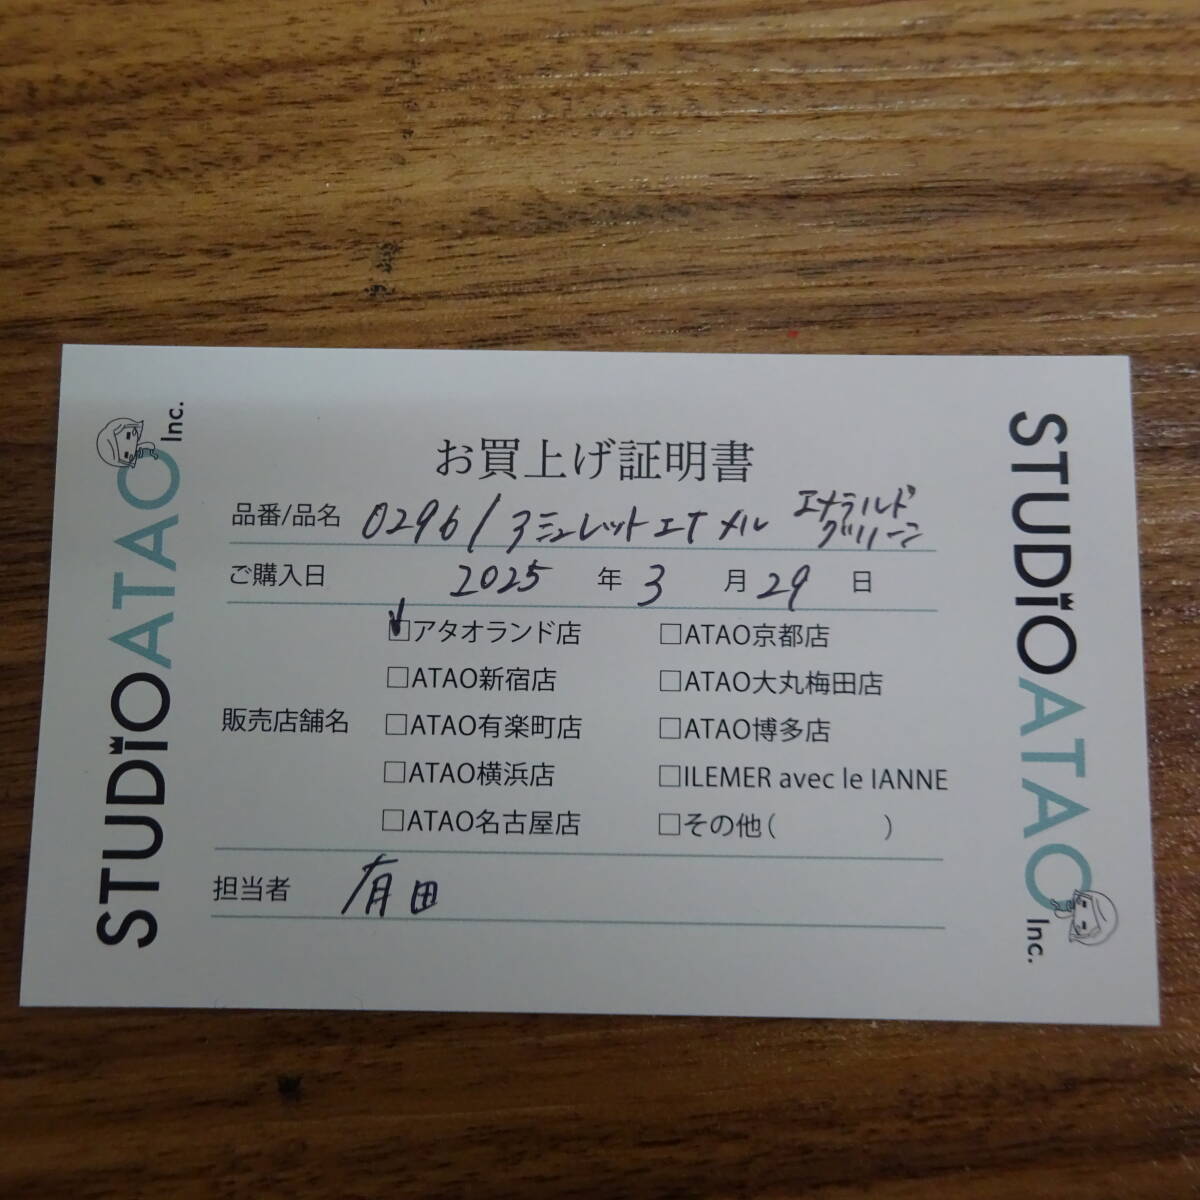 お買上げ証明書
品番/品名 0296/ミュレットエナメル エナラルド
グリーン
ご購入日 2025 年 3 月 29 日
販売店舗名
□アタオランド店 □ATAO京都店
□ATAO新宿店 □ATAO大丸梅田店
□ATAO有楽町店 □ATAO博多店
□ATAO横浜店 □ILEMER avec le IANNE
□ATAO名古屋店 □その他( )
担当者 有田
STUDIO ATAO Inc.
STUDIO ATAO Inc.